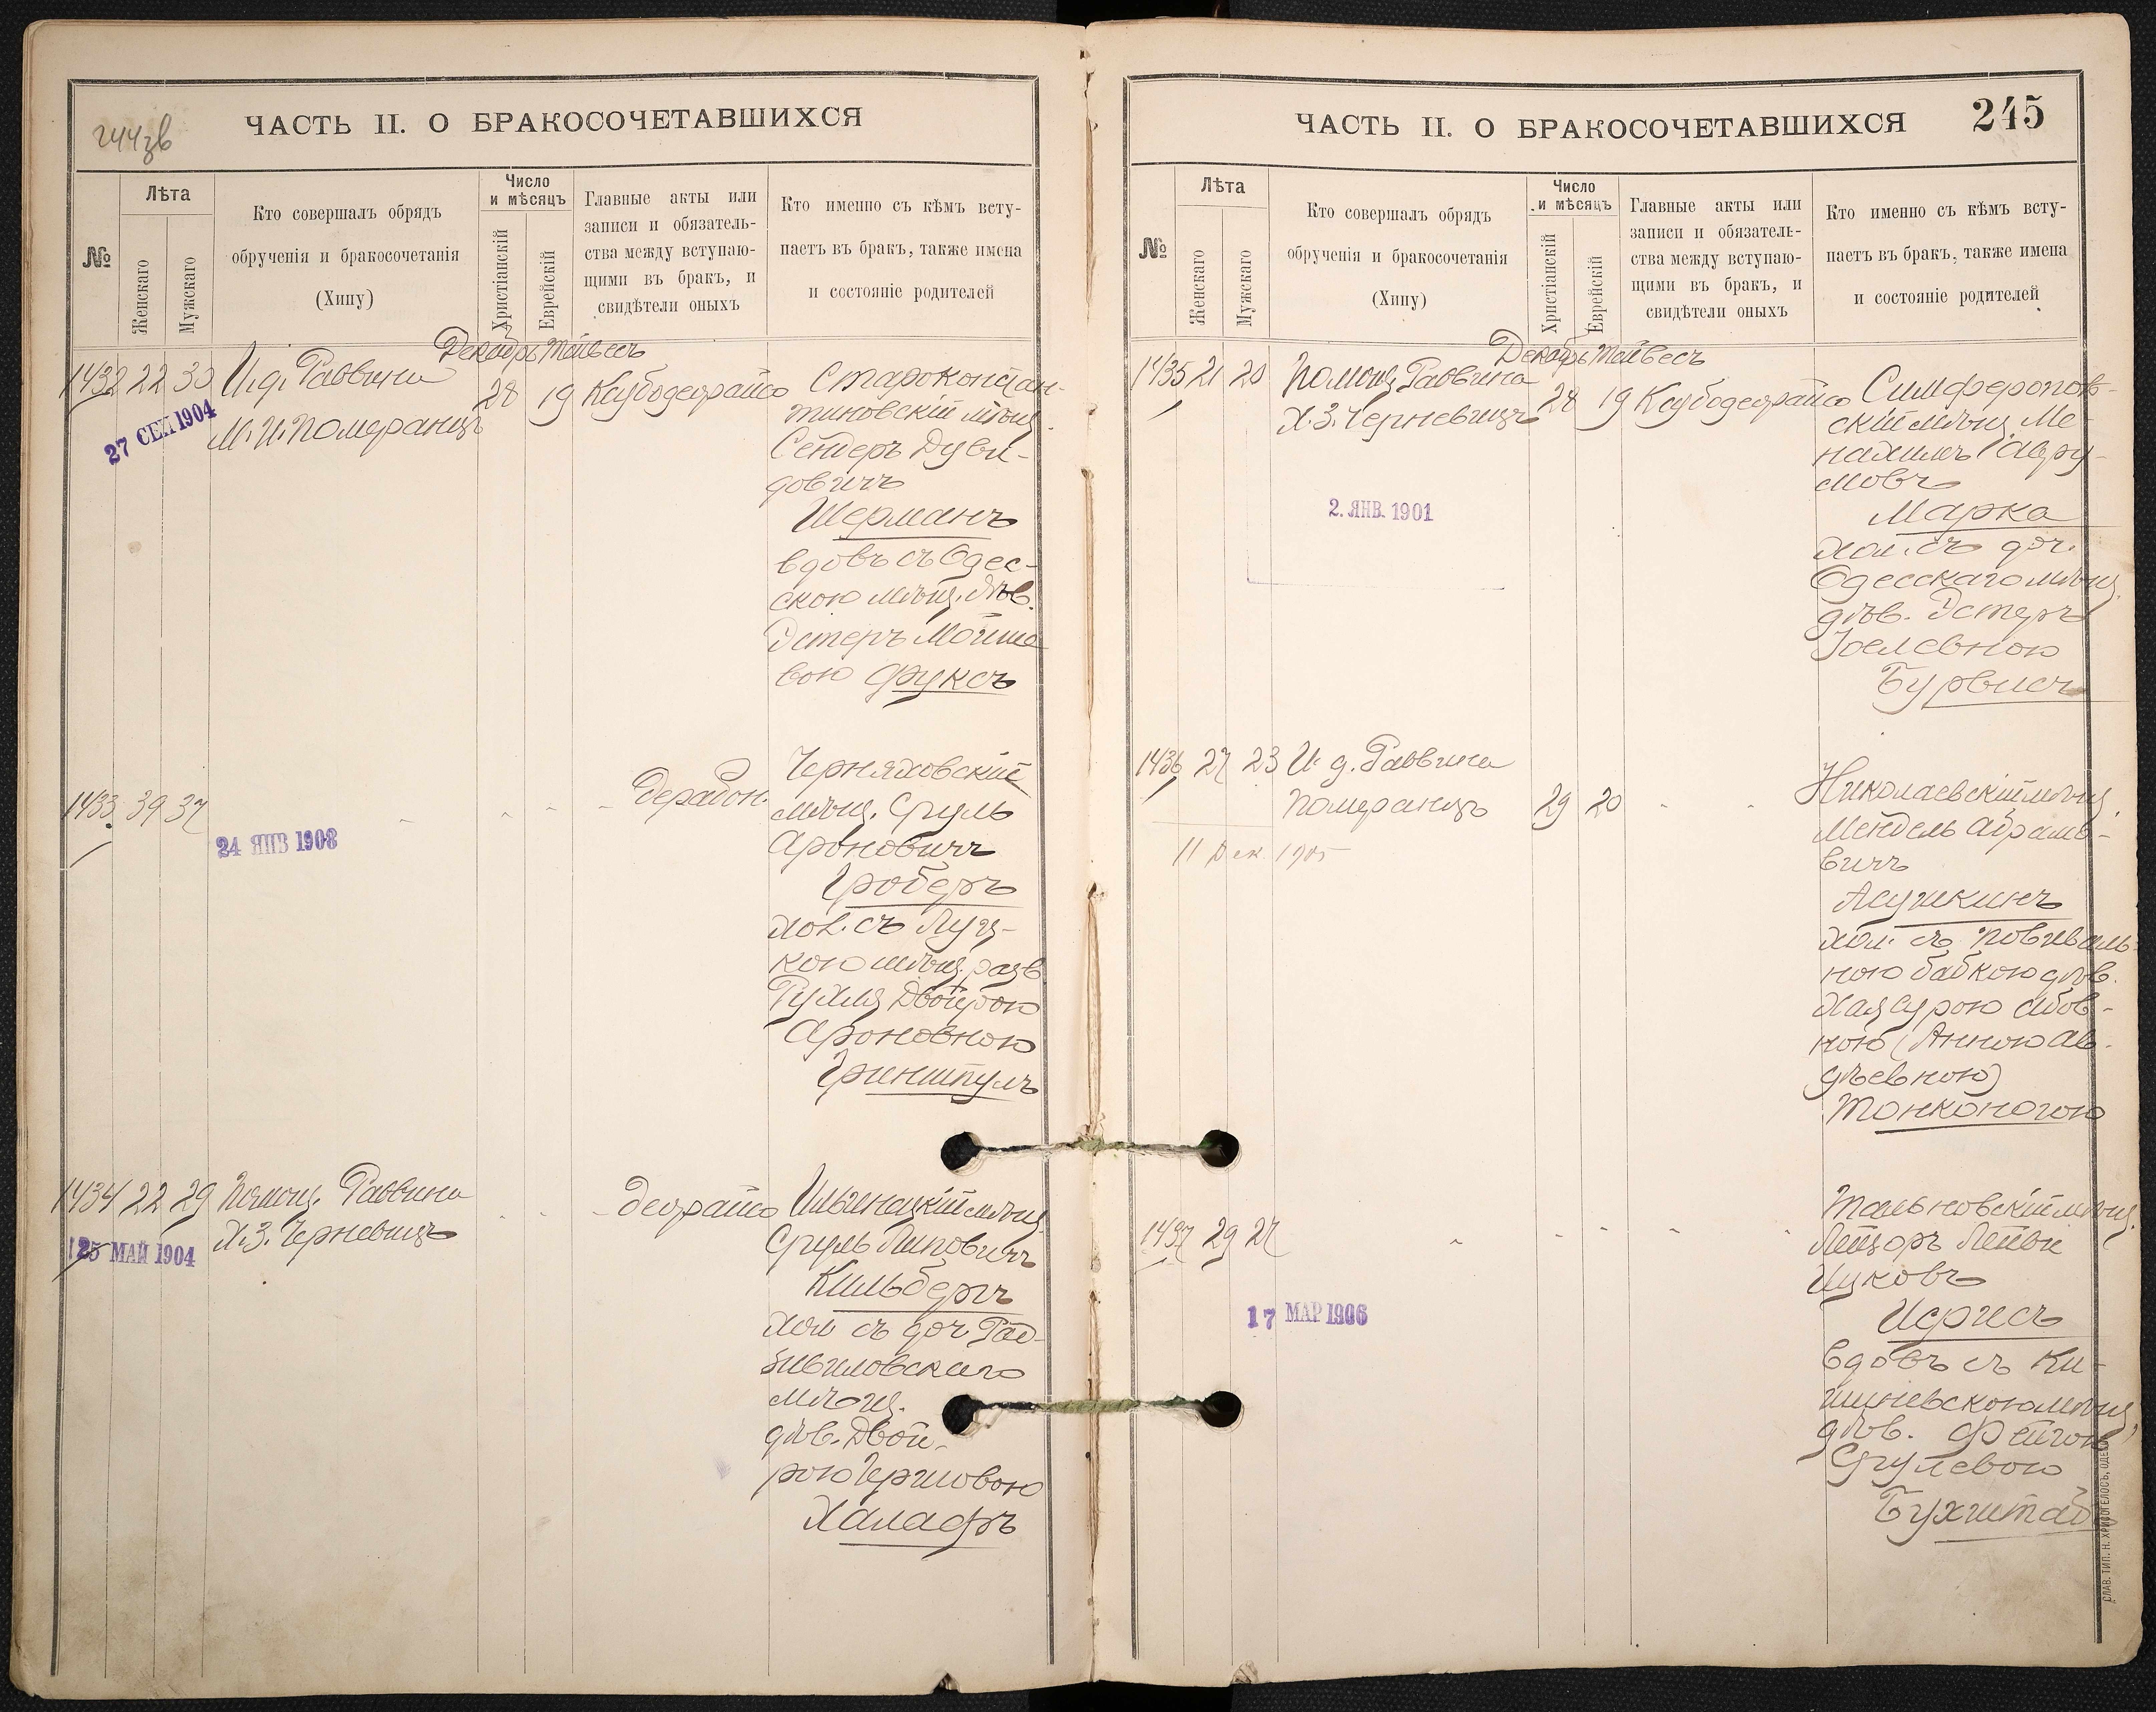 244зв
ЧАСТЬ II. О БРАКОСОЧЕТАВШИХСЯ
№
Лѣта
Женскаго
Мужскаго
Кто совершалъ обрядъ
обрученія и бракосочетанія
(Хипу)
Число
и мѣсяцъ
Христіанскій
Еврейскій
Главные акты или
записи и обязатель-
ства между вступаю-
щими въ бракъ, и
свидѣтели оныхъ
Кто именно съ кѣмъ всту-
паетъ въ бракъ, также имена
и состояніе родителей
Декабрь Тейвесъ
1432 22 30 И. д. Раввина
М. И. Померанцъ
28 19 Каубодеорайсо
27 СЕН 1904
Староконстан-
тиновскій мѣщ.
Сендеръ Дуви-
довичъ
Шерманъ
вдовъ съ Одес-
скою мѣщ. дѣв.
Эстеръ Мойше
вою Фуксъ
1433 39 37
дерабон.
24 ЯНВ 1908
Черняховскій
мѣщ. Сруль
Ароновичъ
Гроберъ
хол. съ Луц-
кою мѣщ. разв.
Рухля Двойрою
Ароновною
Гриншпулъ
1434 22 29 Помощ. Раввина
Х. З. Черневицъ
деорайсо
25 МАЙ 1904
Ильинецкій мѣщ.
Сруль Липовичъ
Кильбергъ
хол съ доч. Рад-
зивиловскаго
мѣщ.
дѣв. Двой-
рою Гершовою
Халафъ
ЧАСТЬ II. О БРАКОСОЧЕТАВШИХСЯ
245
№
Лѣта
Женскаго
Мужскаго
Кто совершалъ обрядъ
обрученія и бракосочетанія
(Хипу)
Число
и мѣсяцъ
Христіанскій
Еврейскій
Главные акты или
записи и обязатель-
ства между вступаю-
щими въ бракъ, и
свидѣтели оныхъ
Кто именно съ кѣмъ всту-
паетъ въ бракъ, также имена
и состояніе родителей
Декабрь Тейвесъ
1435 21 20 Помощ. Раввина
Х. З. Черневицъ
28 19 Каубодеорайсо
2. ЯНВ. 1901
Симферополь-
скій мѣщ. Ме-
нахимъ Гавру-
мовъ
Марка
хол. съ доч.
Одесскаго мѣщ.
дѣв. Эстеръ
Іоелевною
Бурвисъ
1436 27 23 И. д. Раввина
Померанцъ
29 20
11 Дек. 1905
Николаевскій мѣщ.
Мендель Абрамо-
вичъ
хол. съ повиваль-
ною бабкою дѣв.
Хая Сурою Абов-
ною (Анною Ав-
дѣевною)
Тонконогою
1437 29 27
17 МАР 1906
Тальновскій мѣщ.
Лейзоръ Лейви
Ицковъ
Ифрисъ
вдовъ съ Ки-
шиневскою мѣщ.
дѣв. Фейгою
Срулевою
Бухштабъ
СЛАВ. ТИП. Н. ХРИСОГЕЛОСЪ, ОДЕССА